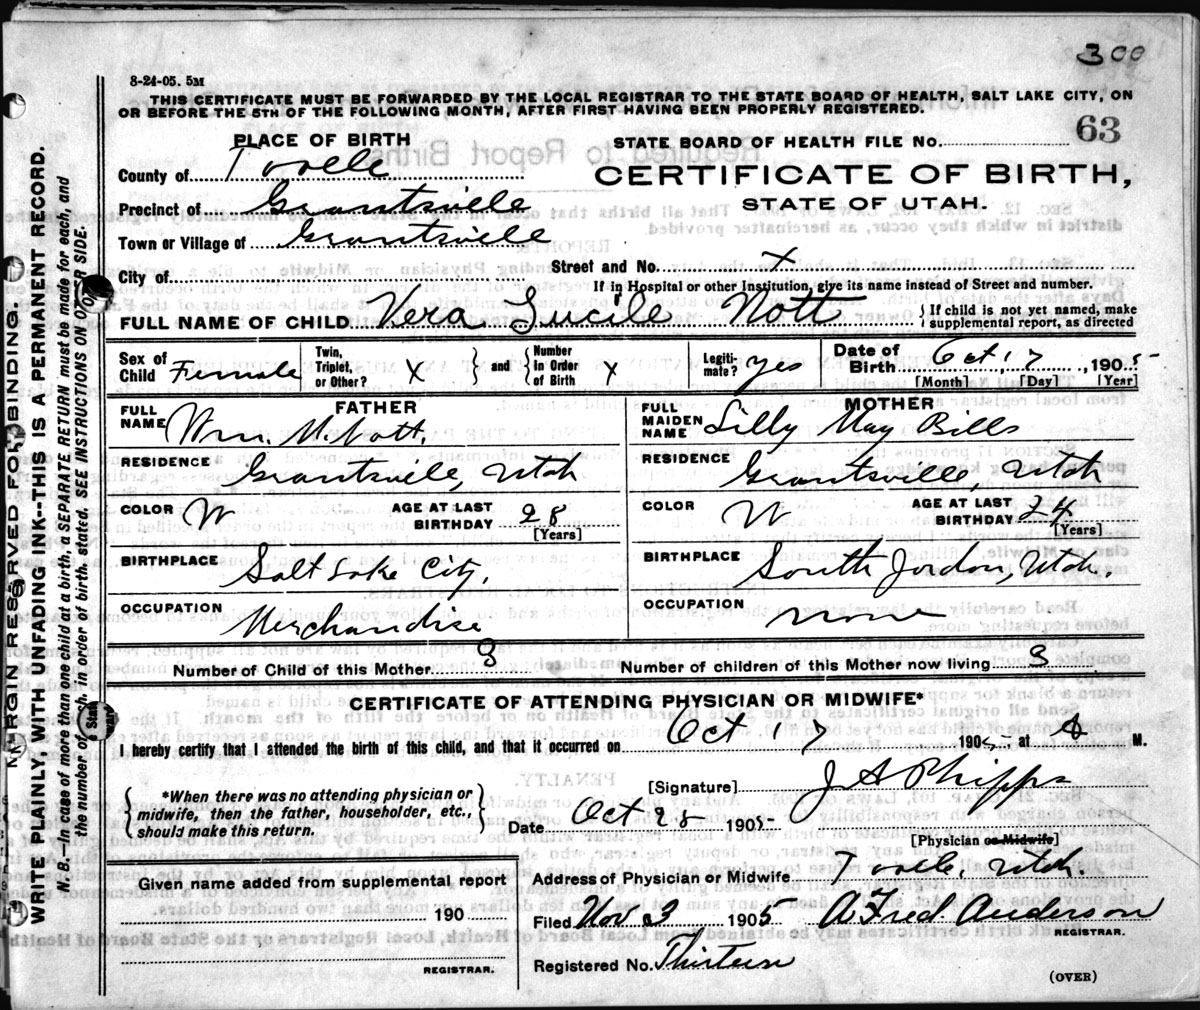 300
8-24-05. 5M
THIS CERTIFICATE MUST BE FORWARDED BY THE LOCAL REGISTRAR TO THE STATE BOARD OF HEALTH, SALT LAKE CITY, ON
OR BEFORE THE 5TH OF THE FOLLOWING MONTH, AFTER FIRST HAVING BEEN PROPERLY REGISTERED.
PLACE OF BIRTH
STATE BOARD OF HEALTH FILE No. 63
County of Tooele
CERTIFICATE OF BIRTH,
Precinct of Grantsville
STATE OF UTAH.
Town or Village of Grantsville
City of
Street and No. X
If in Hospital or other Institution, give its name instead of Street and number.
FULL NAME OF CHILD Vera Lucile Nott { If child is not yet named, make supplemental report, as directed
Sex of Child Female Twin, Triplet, or Other? X } and { Number In Order of Birth X Legitimate? yes Date of Birth Oct. 7, 1905
[Month] [Day] [Year]
FATHER
FULL NAME Wm. M. Nott.
RESIDENCE Grantsville, Utah
COLOR W AGE AT LAST BIRTHDAY 28 [Years]
BIRTHPLACE Salt Lake City.
OCCUPATION Merchandise
MOTHER
FULL MAIDEN NAME Lilly May Bills
RESIDENCE Grantsville, Utah
COLOR W AGE AT LAST BIRTHDAY 24 [Years]
BIRTHPLACE South Jordon, Utah.
OCCUPATION None
Number of Child of this Mother 3 Number of children of this Mother now living 3
CERTIFICATE OF ATTENDING PHYSICIAN OR MIDWIFE*
I hereby certify that I attended the birth of this child, and that it occurred on Oct 7 1905, at M.
{ *When there was no attending physician or midwife, then the father, householder, etc., should make this return. }
[Signature] J A Phipps
Date Oct 25 1905
[Physician or Midwife]
Given name added from supplemental report
190
REGISTRAR.
Address of Physician or Midwife Tooele, Utah.
Filed Nov 3 1905 A. Fred. Anderson
REGISTRAR.
Registered No. Thirteen
(OVER)
MARGIN RESERVED FOR BINDING
WRITE PLAINLY, WITH UNFADING INK--THIS IS A PERMANENT RECORD.
N. B.--In case of more than one child at a birth, a SEPARATE RETURN must be made for each, and
the number of each, in order of birth, stated. SEE INSTRUCTIONS ON OTHER SIDE.